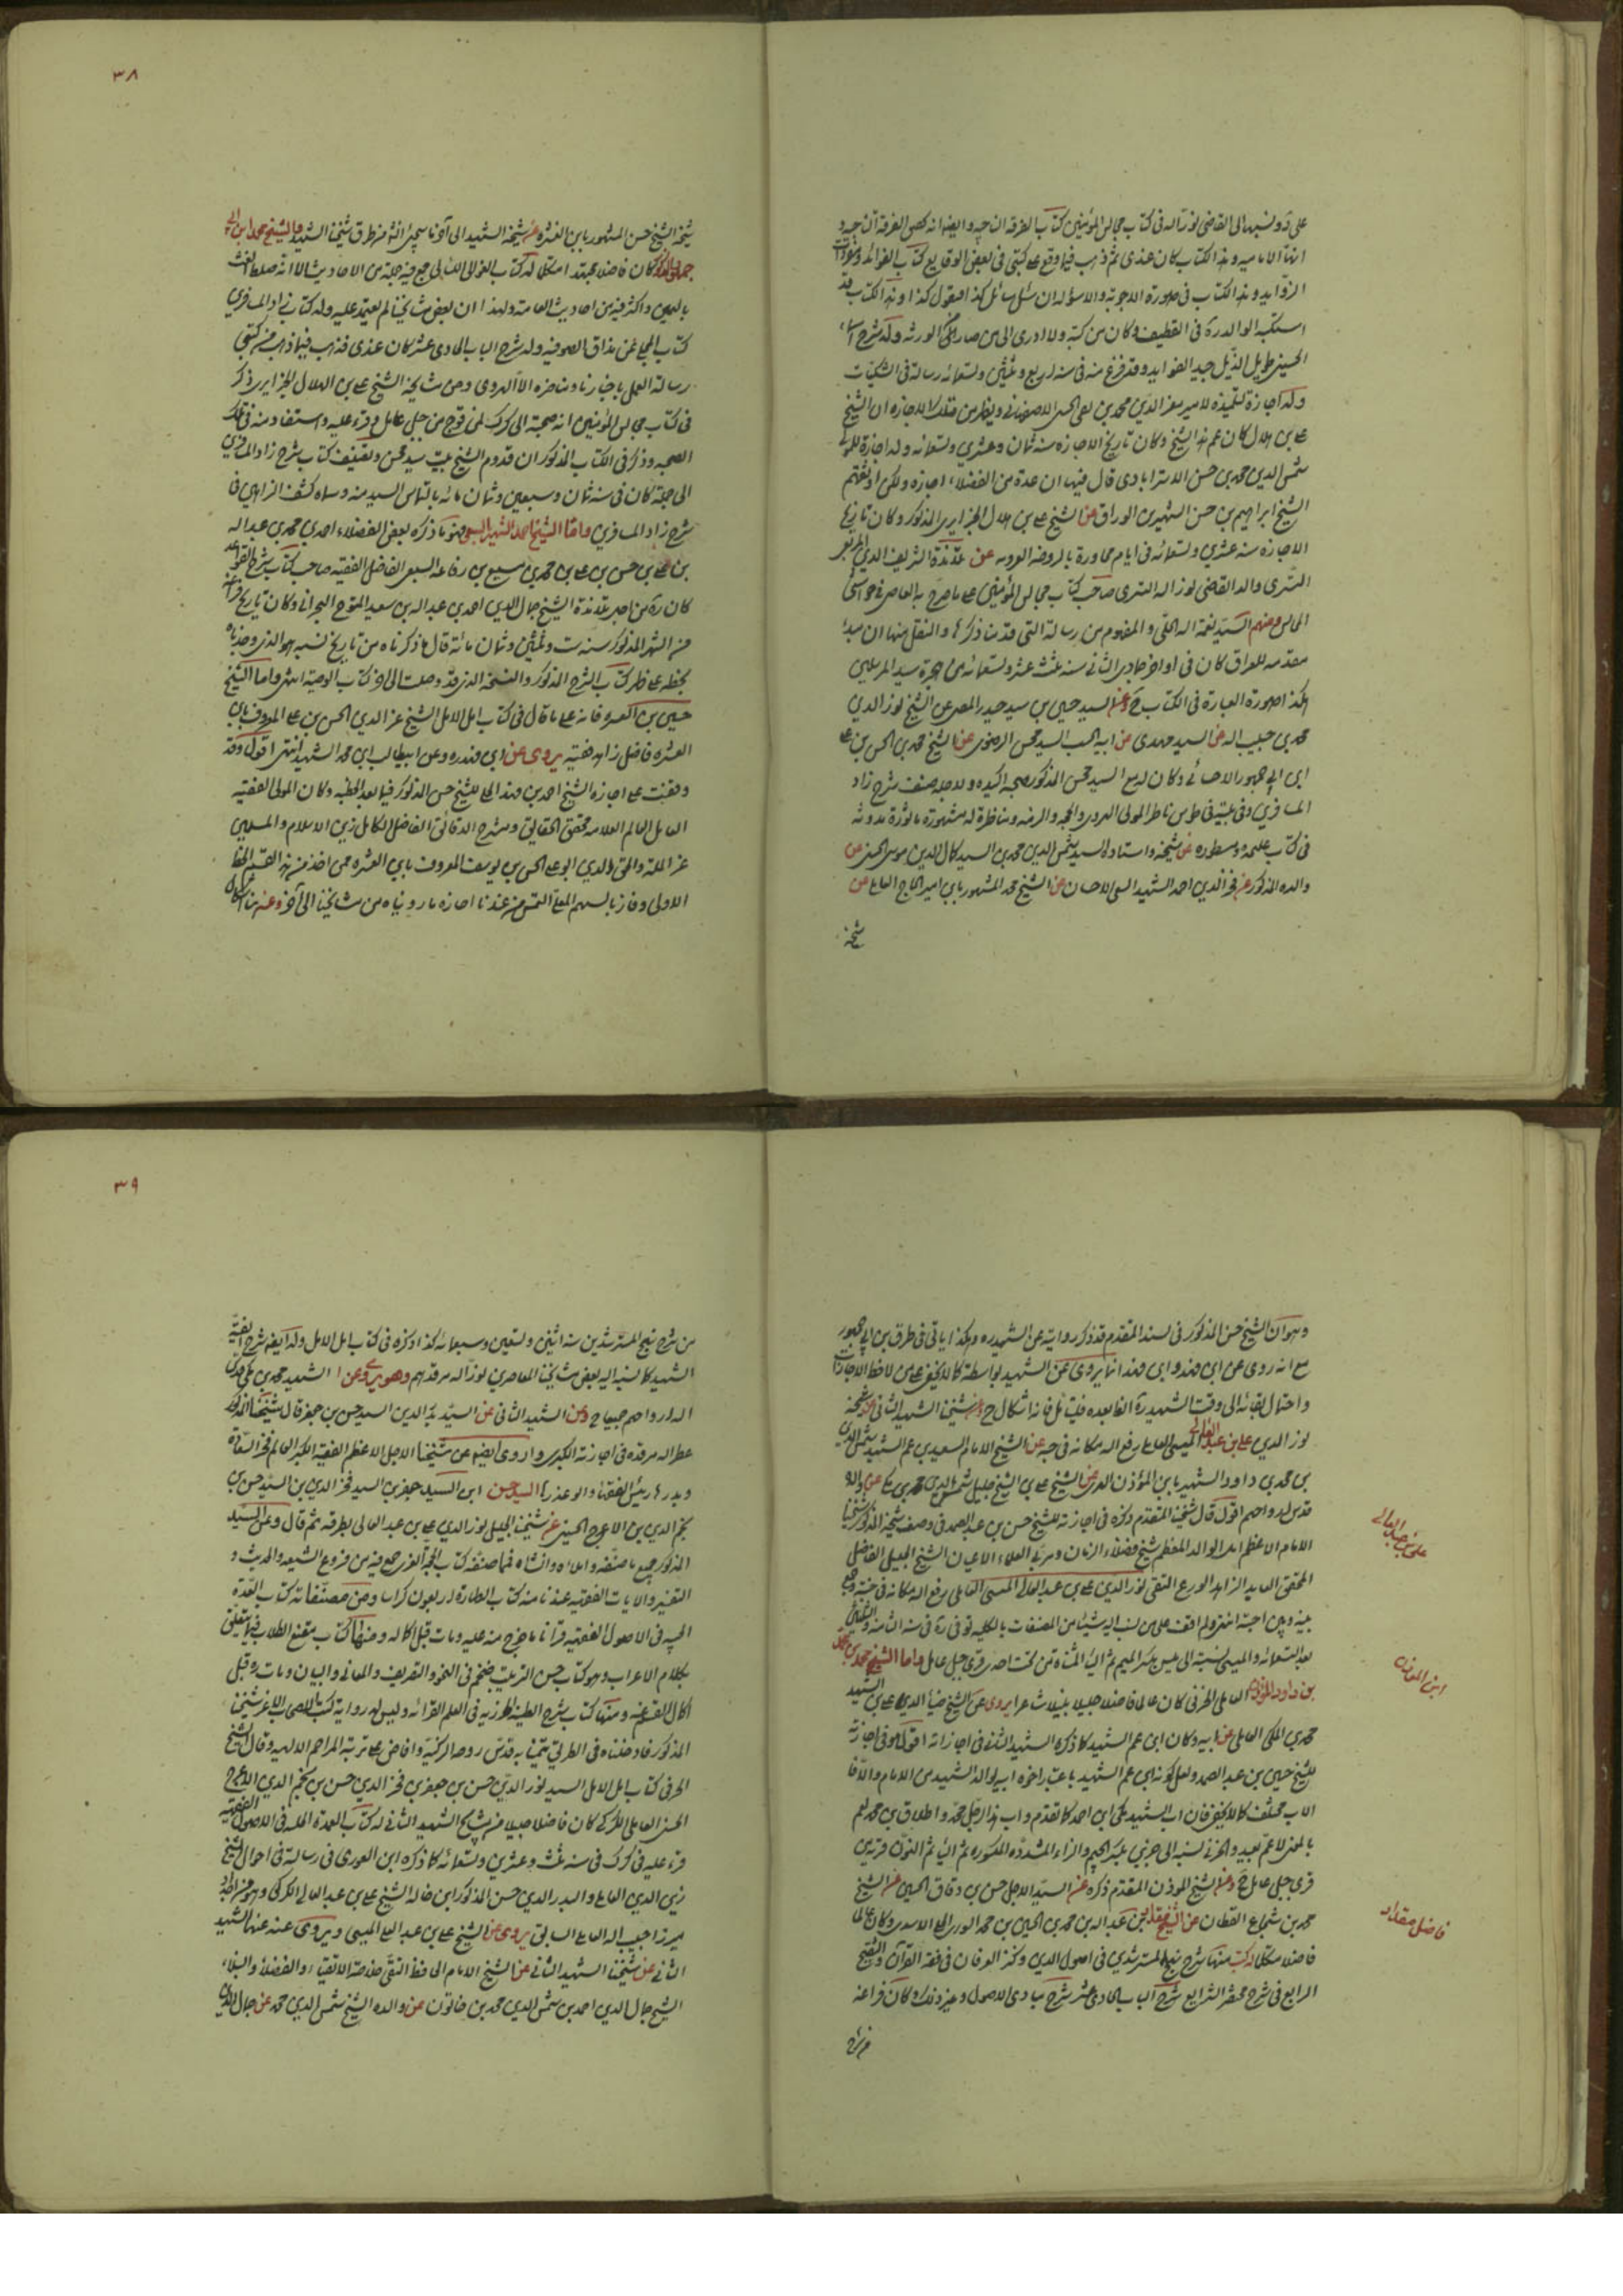 على ذو ونسبها الى القاضى نور الله فى كتاب مجالس المؤمنين كتاب الفرقة الناجيه و ايضا انه الفرقة الناجيه
الاماميه وهذا الكتاب كان عندى ثم ذهب فيما وقع على كتبى فى بعض الوقايع كتاب الفوائد
الزوايد وهذا الكتاب فى صورة الاجوبة والاسؤلة ان سئل سائل كذا فيقول كذا وهذا الكتاب قد
استكتبه الوالد ره فى القطيف وكان من كتبه ولا ادرى الى من صار الورثه وله شرح اسماء
الحسنى طويل الذيل جيد الفوايد وقد فرغ منه فى سنه اربع وثلثين وتسعمائه رسالة فى الشكيات
وله اجازة لتلميذه للامير معز الدين محمد بن تقى الدين الاصفهانى ويظهر من تلك الاجازه ان الشيخ
على بن هلال كان عم هذا الشيخ وكان تاريخ الاجازه سنه ثمان وعشرين وتسعمائه وله اجازة للمولى
شمس الدين محمد بن حسن الاسترابادى قال فيها ان عدة من الفضلاء اجازه ولكن اوثقهم
الشيخ ابراهيم بن حسن الشهير بن الوراق عن الشيخ على بن هلال الجزايرى المذكور وكان تاريخ
الاجازه سنه عشرين وتسعمائه فى ايام مجاورة بالروضه الغرويه عن تلامذة الشريف الدين المرعشى
التسترى والد القاضى نور الله التسترى صاحب كتاب مجالس المؤمنين على ما صرح به المعاصر فى حواشى
المجالس ومنهم السيد نعمة الله الحلى والمفهوم من رسالة التى قدمنا ذكرها والنقل منها ان مبدأ
مقدمه للعراق كان فى اواخر جمادى الثانى سنه ثلث عشر وتسعمائه من هجرة سيد المرسلين
هكذا صورة العبارة فى الكتاب ح وعن السيد حسين بن سيد حيدر المصر عن الشيخ نور الدين
محمد بن حبيب الله عن السيد مهدى عن ابيه الحسب السيد محسن الرضوى عن الشيخ محمد بن الحسن بن على
ابن ابى جمهور الاحسائى وكان له مع السيد محسن المذكور صحبه اكيده ولاجله صنف شرح زاد
المسافرين وفى بيته فى طوس ناظر المولى الهروى والمجه والزمه ومناظرة له مشهورة ماثورة مدونه
فى كتاب عليحده ومسطوره عن شيخه واستاده السيد شمس الدين محمد بن السيد كمال الدين موسى الحسينى عن
والده المذكور عن فخر الدين احمد الشهير السبعى الاحسائى عن الشيخ محمد المشهور بابن امير الحاج العاملى عن
شيخه
٣٨
شيخه الشيخ حسن المشهور بابن العشره عن شيخه الشهيد الى آخر ما سيجئ انشاء من طرق شيخنا الشهيد واما الشيخ محمد ابن ابى
جمهور المذكور كان فاضلا مجتهدا متكلما له كتاب الغوالى اللئالى جمع فيه جملة من الاحاديث الا انه خلط الغث
بالسمين واكثر فيه من احاديث العامة ولهذا ان بعض مشايخنا لم يعتمد عليه وله كتاب زاد المسافرين
كتاب المجلى على مذاق الصوفيه وله شرح الباب الحادى عشر كان عندى فذهب فيما ذهب من كتبى
رسالة العمل باخبارنا ومناظره الملا الهروى ومن مشايخه الشيخ على بن الهلال الجزايرى ذكر
فى كتاب مجالس المؤمنين انه صحبه الى كرك نوح من جبل عامل وقرء عليه واستفاد منه فى تلك
الصحبه وذكر فى الكتاب المذكور ان قدوم الشيخ بيت سيد محسن وتصنيف كتاب شرح زاد المسافرين
الى جهة كان فى سنه ثمان وسبعين وثمان مائه بالتماس السيد منه وسماه كشف البراهين فى
شرح زاد المسافرين واما الشيخ احمد الشهير السبعى فهو كما ذكره بعض الفضلاء احمد بن محمد بن عبد الله
بن على بن حسن بن على بن محمد بن سبيع بن رفاعه السبعى الفاضل الفقيه صاحب كتاب شرح القواعد
كان ره من اجل تلامذة الشيخ جمال الدين احمد بن عبد الله بن سعيد المتوج البحرانى وكان تاريخ فراغه
من الشرح المذكور سنه ست وثلثين وثمان مائة قال ما ذكرناه من تاريخ نسبه هو الذى وجدناه
بخطه على ظهر كتاب الشرح المذكور والنسخه التى قد وصلت الى اخر كتاب الوصيه انتهى واما الشيخ
حسين بن العشره فانه على ما قال فى كتاب امل الامل الشيخ عز الدين الحسن بن على المعروف بابن
العشره فاضل زاهد فقيه يروى عن ابن فهد ره وعن ابى طالب ابن محمد الشهيد انتهى اقول وقد
وقفت على اجازه الشيخ احمد بن فهد الحلى للشيخ حسن المذكور فيها بعد الخطبه وكان المولى الفقيه
العامل العالم العلامه محقق الحقايق ومستخرج الدقائق الفاضل الكامل زين الاسلام والمسلمين
عز الملة والحق والدين ابو على الحسن بن يوسف المعروف بابن العشره ممن اخذ من هذا القسم الحظ
الاولى وفاز بالسهم المعلى التمس من عندنا اجازه ما رويناه من مشايخنا الى آخره وعندى
وهو ان الشيخ حسن المذكور فى السند المتقدم قد ذكر روايته عن الشهيد ره وهكذا ياتى فى طرق بن ابى جمهور
مع انه روى عن ابن فهد وابن فهد انما يروى عن الشهيد بواسطة كما لا يخفى على من لاحظ الاجازات
واحتمال بقائه الى وقت الشهيد ره الظا بعده فليتامل فانه اشكال ح وعن شيخنا الشهيد الثانى عن شيخه
نور الدين على بن عبد العالى الميسى العاملى رفع الله مكانه فى جنه عن الشيخ الامام السعيد بن عم الشهيد شمس الدين
بن محمد بن داود الشهير بابن المؤذن الجزينى عن الشيخ على بن الشيخ جليل شمس الدين محمد بن مكى عن والده
قدس الله ارواحهم اقول قال شيخنا المتقدم ذكره فى اجازته للشيخ حسن بن عبد الصمد فى وصف شيخه المذكور شيخنا
الامام الاعظم بل الوالد المعظم شيخ فضلاء الزمان ومربى العلماء الاعيان الشيخ الجليل الفاضل
المحقق العابد الزاهد الورع التقى نور الدين على بن عبد العالى الميسى العاملى رفع الله مكانه فى جنته وجمع
بينه وبين احبته انتهى ولم اقف على من نسب اليه شيئا من المصنفات بالكليه توفى ره فى سنه الثامنه والثلثين
بعد التسعمائه والميسى نسبة الى ميس بكسر الميم ثم الياء المثناة من تحت احد قرى جبل عامل واما الشيخ محمد بن محمد
بن داود المؤذن العاملى الجزينى كان عالما فاضلا جليلا نبيلا شاعرا يروى عن الشيخ ضياء الدين على بن الشهيد
محمد بن المكى العاملى عن ابيه وكان ابن عم الشهيد كما ذكره الشهيد الثانى فى اجازاته اقول هو فى اجازته
للشيخ حسين بن عبد الصمد ولعل كونه ابن عم الشهيد باعتبار اخوه ابيه لوالد الشهيد من الام والا فا
الاب مختلف كما لا يخفى فان اب الشهيد مكى ابن احمد كما تقدم واب هذا الرجل محمد واطلاق بن محمد لعم
بالمعنى الاعم بعيد والجزينى نسبة الى جزين بكسر الجيم والزاء المشدده المكسوره ثم الياء ثم النون قرية من
قرى جبل عامل ح وعن الشيخ المؤذن المتقدم ذكره عن السيد الاجل حسن بن دقاق الحسينى عن الشيخ
محمد بن شجاع القطان عن الشيخ مقداد بن عبد الله بن محمد بن الحسين بن محمد السورى الحلى الاسدى وكان عالما
فاضلا متكلما له كتب منها شرح نهج المسترشدين فى اصول الدين وكنز العرفان فى فقه القرآن والتنقيح
الرايع فى شرح مختصر الشرايع شرح الباب الحادى عشر شرح مبادى الاصول وغير ذلك وكان فراغه
من شرح
على بن عبد العالى
ابن المؤذن
فاضل مقداد
٣٩
من شرح نهج المسترشدين سنه اثنين وتسعين وسبعمائه كذا ذكره فى كتاب امل الامل وله ايضا شرح الفيه
الشهيد كما نسبه اليه بعض مشايخنا المعاصرين نور الله مرقدهم وهو يروى عن الشهيد محمد بن مكى قدس
الله ارواحهم جميعا ح وعن الشهيد الثانى عن السيد بدر الدين السيد حسن بن جعفر قال شيخنا المذكور
عطر الله مرقده فى اجازته الكبيره واروى ايضا عن شيخنا الاجل الاعظم الفقيه الكبير العالم فخر السادة
وبدرها رئيس الفقهاء وابو عذرها السيد حسن ابن السيد جعفر بن السيد فخر الدين بن السيد حسن بن
نجم الدين بن الاعرج الحسينى عن شيخنا الجليل نور الدين على بن عبد العالى بطرقه ثم قال وعن السيد
المذكور جميع ما صنفه واملاه وانشاه فمما صنفه كتاب المحجة الغراء جمع فيه من فروع الشيعه والحديث و
التفسير والايات الفقهيه عندنا منه كتاب الطهارة اربعون كراسا ومن مصنفاته كتاب العمدة
الجليه فى الاصول الفقهيه قرأنا ما خرج منه عليه ومات قبل اكماله ومنها كتاب مقنع الطلاب فيما يتعلق
بكلام الاعراب وهو كتاب حسن الترتيب ضخم فى النحو والتصريف والمعانى والبيان ومات ره قبل
اكمال القسم منه ومنها كتاب شرح الطيبه الجزريه فى العلم القرائة وليس له رواية كتب الاصحاب الا عن شيخنا
المذكور فادخلناه فى الطريق تيمنا به قدس روحه الزكيه وافاض على تربته المراحم الالهيه وقال الشيخ
الحر فى كتاب امل الامل السيد نور الدين حسن بن جعفر بن فخر الدين حسن بن نجم الدين الاعرج
الحسينى العاملى الكركى كان فاضلا جليلا من مشايخ الشهيد الثانى له كتاب العمدة الجليه فى الاصول الفقهيه
قرء عليه فى كرك فى سنه ثلث وعشرين وتسعمائه كما ذكره ابن العودى فى رسالة فى احوال الشيخ
زين الدين العاملى والبدر الدين حسن المذكور ابن خاله الشيخ على بن عبد العالى الكركى وهو من اجداد
ميرزا حبيب الله العاملى السابق يروى عن الشيخ على بن عبد العالى الميسى ويروى عنه عنها الشهيد
الثانى عن شيخنا الشهيد الثانى عن الشيخ الامام الحافظ التقى خلاصة الاتقياء والفضلاء والنبلاء
الشيخ جمال الدين احمد بن شمس الدين محمد بن خاتون عن والده الشيخ شمس الدين محمد عن جمال الدين